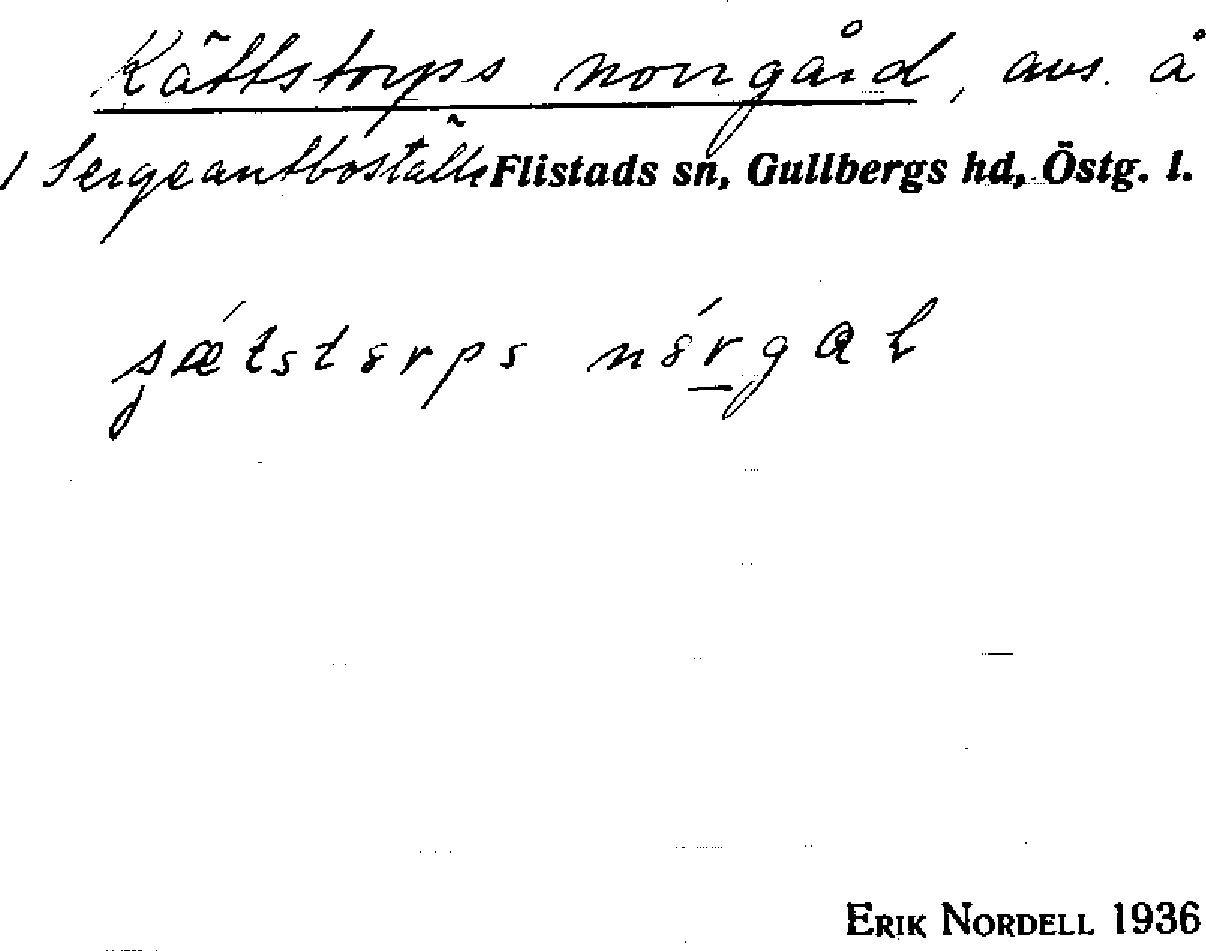 Kättstorps norrgård, avs. å
1 Sergeantboställe Flistads sn, Gullbergs hd, Östg. l.
ERIK NORDELL 1936